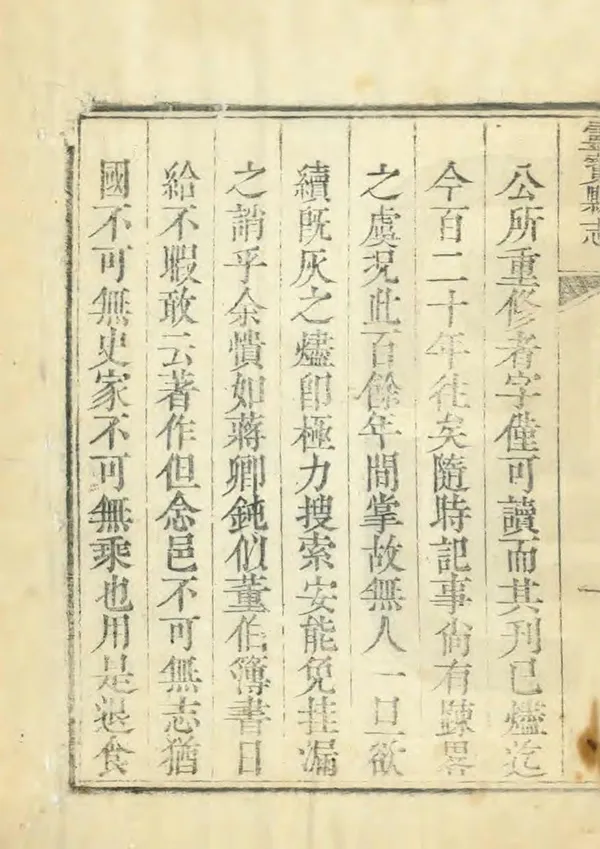 靈寶縣志
一
公所重修者字僅可讀而其刊已燼迄
今百二十年往矣隨時記事尙有踈畧
之虞况此百餘年間掌故無人一旦欲
續旣灰之燼卽極力搜索安能免挂漏
之誚乎余憒如蔣卿鈍似董伯簿書日
給不暇敢云著作但念邑不可無志猶
國不可無史家不可無乘也用是退食